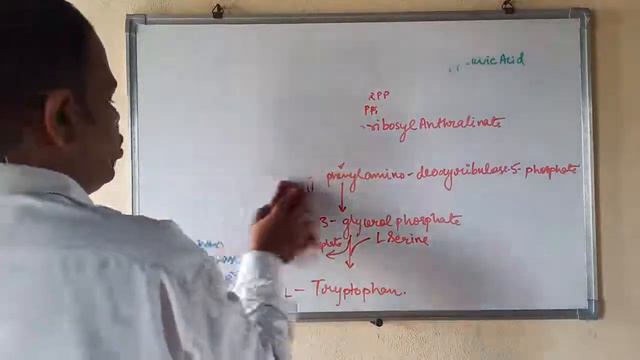 uvic Acid
PP
PPi
ribosyl Anthralinate
phenylamino-deoxyribulose-5-phosphate
3-glycerol phosphate
L Serine
L- Tryptophan.